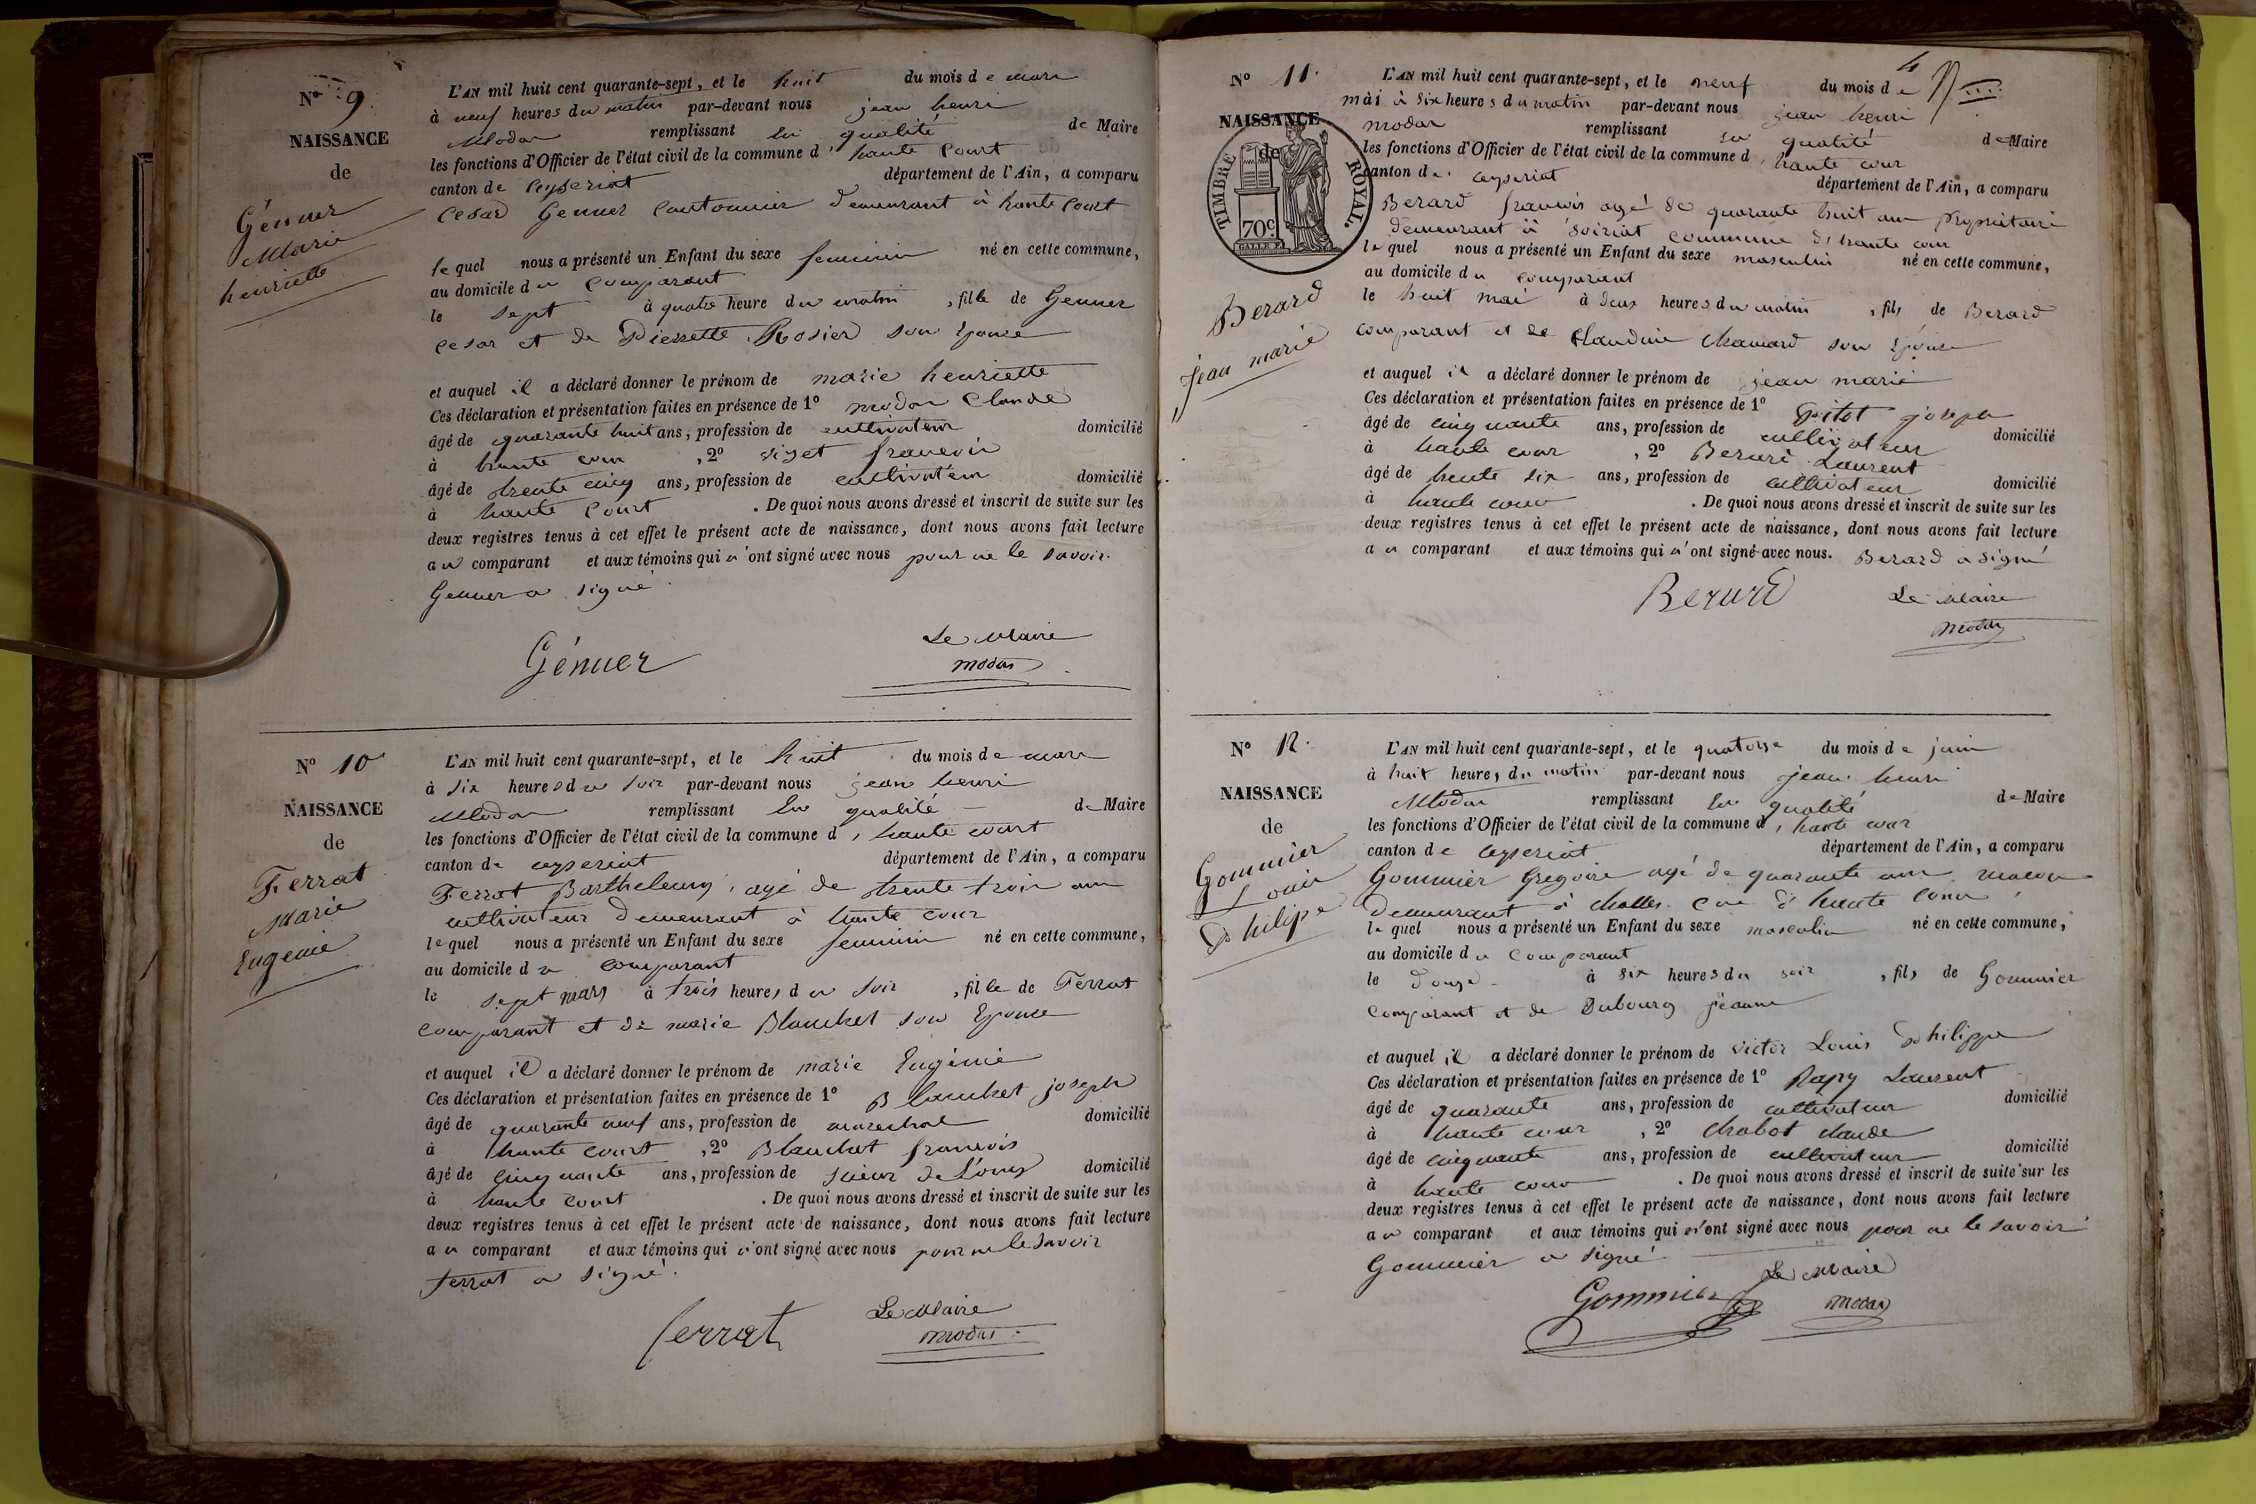 N° 9
NAISSANCE
de
Génner
Marie
henriette
L'AN mil huit cent quarante-sept, et le huit du mois de mars
à neuf heures du matin par-devant nous jean henri
Modas remplissant en qualité de Maire
les fonctions d'Officier de l'état civil de la commune d'haute Court
canton de ceyseriat département de l'Ain, a comparu
Cesar Genner Cantonnier demeurant à haute Court
lequel nous a présenté un Enfant du sexe feminin né en cette commune,
au domicile du comparant
le sept à quatre heure du matin , fille de Genner
cesar et de Pierrette Rosier son Epouse
et auquel il a déclaré donner le prénom de marie henriette
Ces déclaration et présentation faites en présence de 1° modas Claude
âgé de quarante huit ans, profession de cultivateur domicilié
à haute cour , 2° francois
âgé de trente cinq ans, profession de cultivateur domicilié
à haute Court . De quoi nous avons dressé et inscrit de suite sur les
deux registres tenus à cet effet le présent acte de naissance, dont nous avons fait lecture
au comparant et aux témoins qui n'ont signé avec nous pour ne le savoir.
Genner a signé
Génner
Le Maire
modas
N° 10
NAISSANCE
de
Ferrat
Marie
Eugenie
L'AN mil huit cent quarante-sept, et le huit du mois de mars
à six heures du soir par-devant nous jean henri
Modas remplissant en qualité de Maire
les fonctions d'Officier de l'état civil de la commune d'haute court
canton de ceyseriat département de l'Ain, a comparu
Ferrat Barthelemy, agé de trente trois ans
cultivateur demeurant à haute cour
lequel nous a présenté un Enfant du sexe feminin né en cette commune,
au domicile du comparant
le sept mars à trois heures du soir , fille de Ferrat
comparant et de marie Blanchet son Epouse
et auquel il a déclaré donner le prénom de marie Eugénie
Ces déclaration et présentation faites en présence de 1° Blanchet joseph
âgé de quarante neuf ans, profession de marechal domicilié
à haute court , 2° Blanchet francois
âgé de cinquante ans, profession de sieur de Long domicilié
à haute Court . De quoi nous avons dressé et inscrit de suite sur les
deux registres tenus à cet effet le présent acte de naissance, dont nous avons fait lecture
au comparant et aux témoins qui n'ont signé avec nous pour ne le savoir
ferrat a signé.
ferrat
Le Maire
modas
4
N° 11.
NAISSANCE
de
TIMBRE ROYAL.
70c.
Berard
jean marie
L'AN mil huit cent quarante-sept, et le neuf du mois de
mai à six heures du matin par-devant nous jean henri
modas remplissant en qualité de Maire
les fonctions d'Officier de l'état civil de la commune d'haute cour
canton de ceyseriat département de l'Ain, a comparu
Berard francois agé de quarante huit ans propriétaire
demeurant à Soiriat commune d'haute cour
lequel nous a présenté un Enfant du sexe masculin né en cette commune,
au domicile du comparant
le huit mai à deux heures du matin , fils de Berard
comparant et de Claudine chanard son Epouse
et auquel il a déclaré donner le prénom de jean marie
Ces déclaration et présentation faites en présence de 1° Pitot joseph
âgé de cinquante ans, profession de cultivateur domicilié
à haute cour , 2° Laurent
âgé de trente six ans, profession de cultivateur domicilié
à haute cour . De quoi nous avons dressé et inscrit de suite sur les
deux registres tenus à cet effet le présent acte de naissance, dont nous avons fait lecture
au comparant et aux témoins qui n'ont signé avec nous. Berard a signé
Berard
Le Maire
modas
N° 12.
NAISSANCE
de
Gommier
Louis
Philipe
L'AN mil huit cent quarante-sept, et le quatorze du mois de juin
à huit heures du matin par-devant nous jean henri
Modas remplissant en qualité de Maire
les fonctions d'Officier de l'état civil de la commune d'haute cour
canton de ceyseriat département de l'Ain, a comparu
Gommier Gregoire agé de quarante ans macon
demeurant à challes d'haute cour
lequel nous a présenté un Enfant du sexe masculin né en cette commune,
au domicile du comparant
le douze à six heures du soir , fils de Gommier
comparant et de Dubourg jeanne
et auquel il a déclaré donner le prénom de victor Louis Philippe
Ces déclaration et présentation faites en présence de 1° Rapy Laurent
âgé de quarante ans, profession de cultivateur domicilié
à haute cour , 2° chabot claude
âgé de cinquante ans, profession de cultivateur domicilié
à haute cour . De quoi nous avons dressé et inscrit de suite sur les
deux registres tenus à cet effet le présent acte de naissance, dont nous avons fait lecture
au comparant et aux témoins qui n'ont signé avec nous pour ne le savoir
Gommier a signé
Gommier
Le Maire
modas